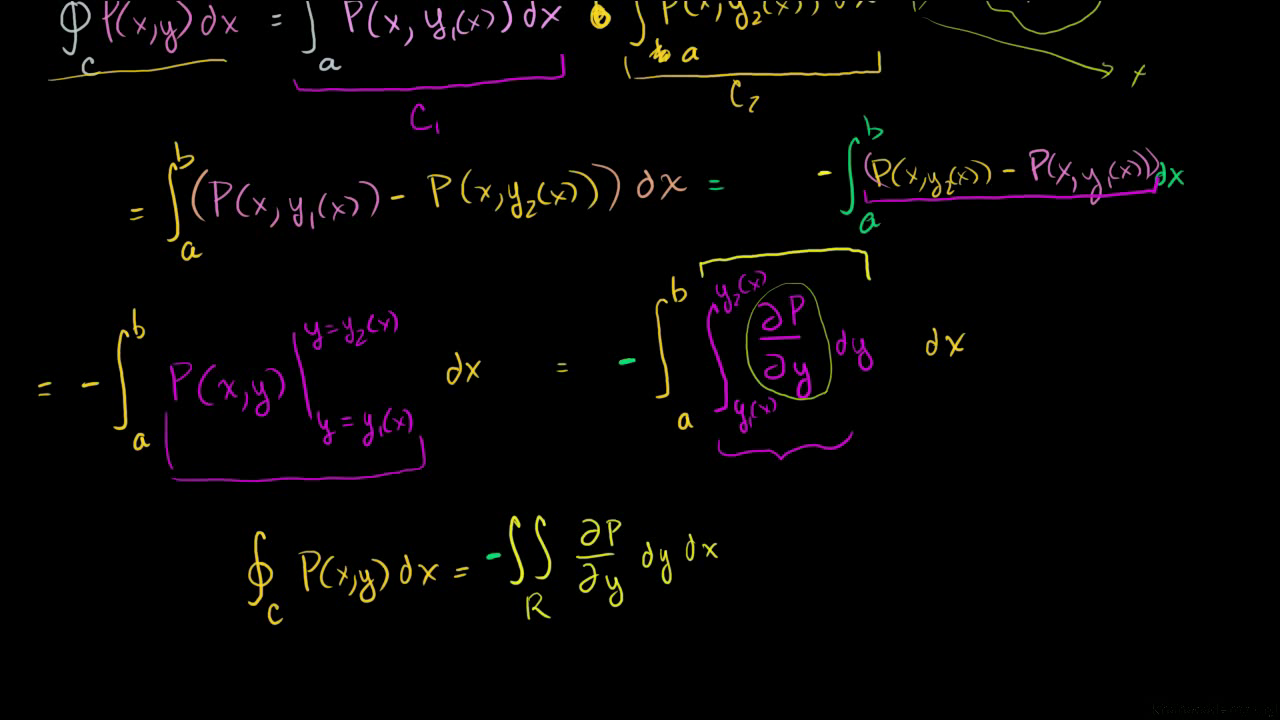 ∮_C P(x,y) dx = ∫_a P(x, y₁(x)) dx ∫_a P(x, y₂(x)) dx
x
C₁ C₂
= ∫_a^b (P(x, y₁(x)) - P(x, y₂(x))) dx = - ∫_a^b (P(x, y₂(x)) - P(x, y₁(x))) dx
= - ∫_a^b P(x,y) |_{y = y₁(x)}^{y = y₂(x)} dx = - ∫_a^b ∫_{y₁(x)}^{y₂(x)} ∂P/∂y dy dx
∮_C P(x,y) dx = - ∬_R ∂P/∂y dy dx